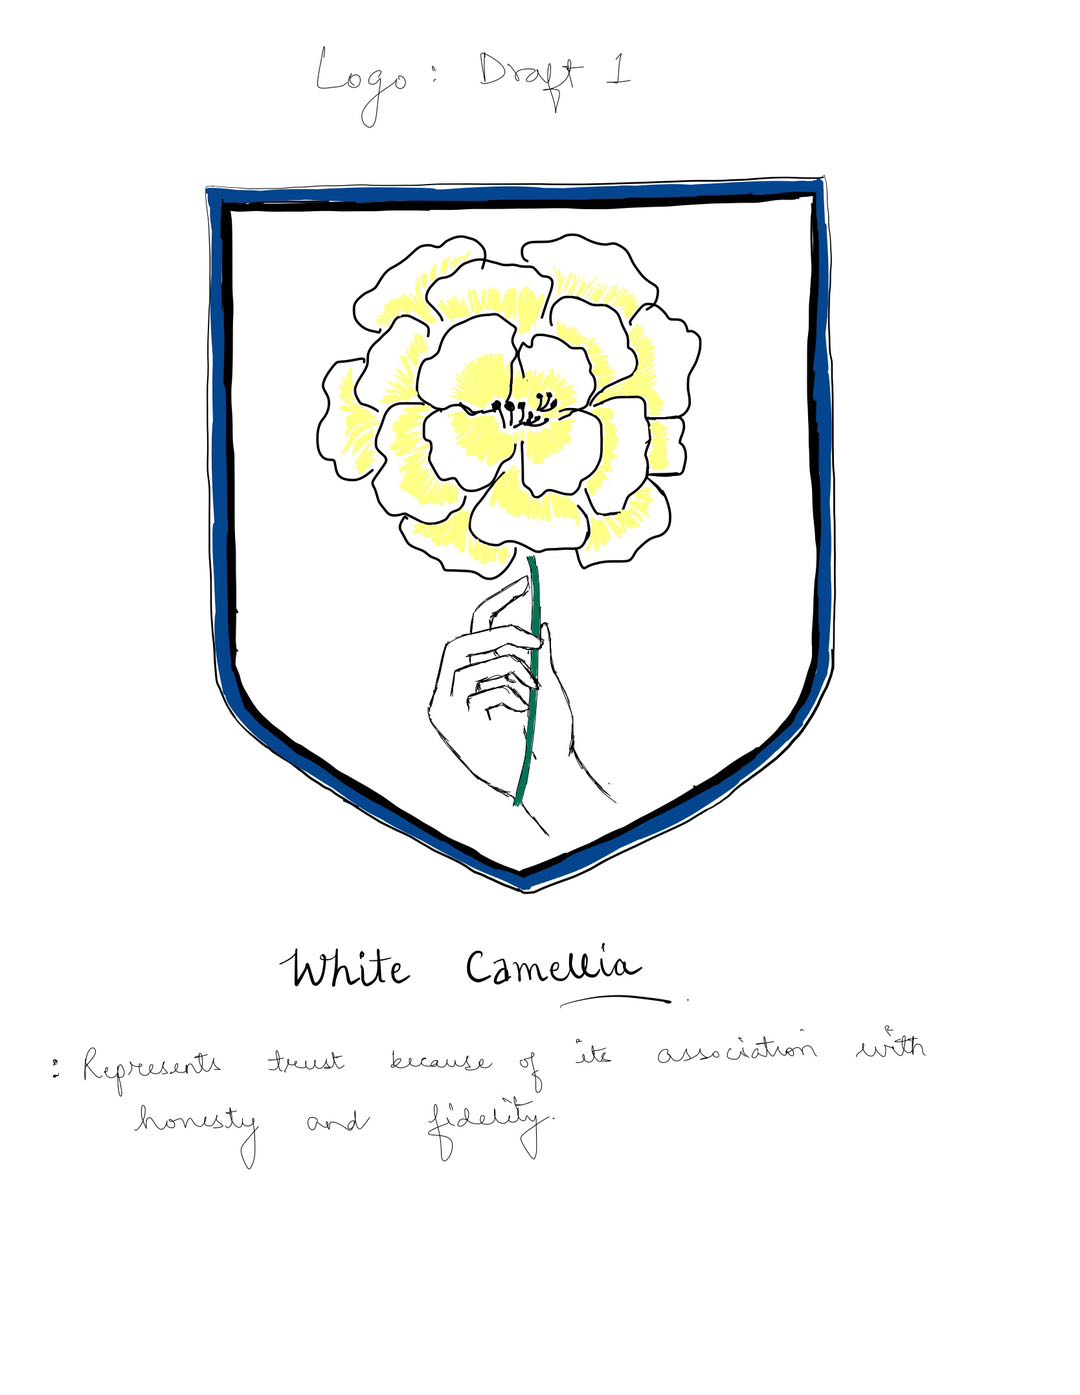 Logo : Draft 1
White Camellia
: Represents trust because of its association with
honesty and fidelity.